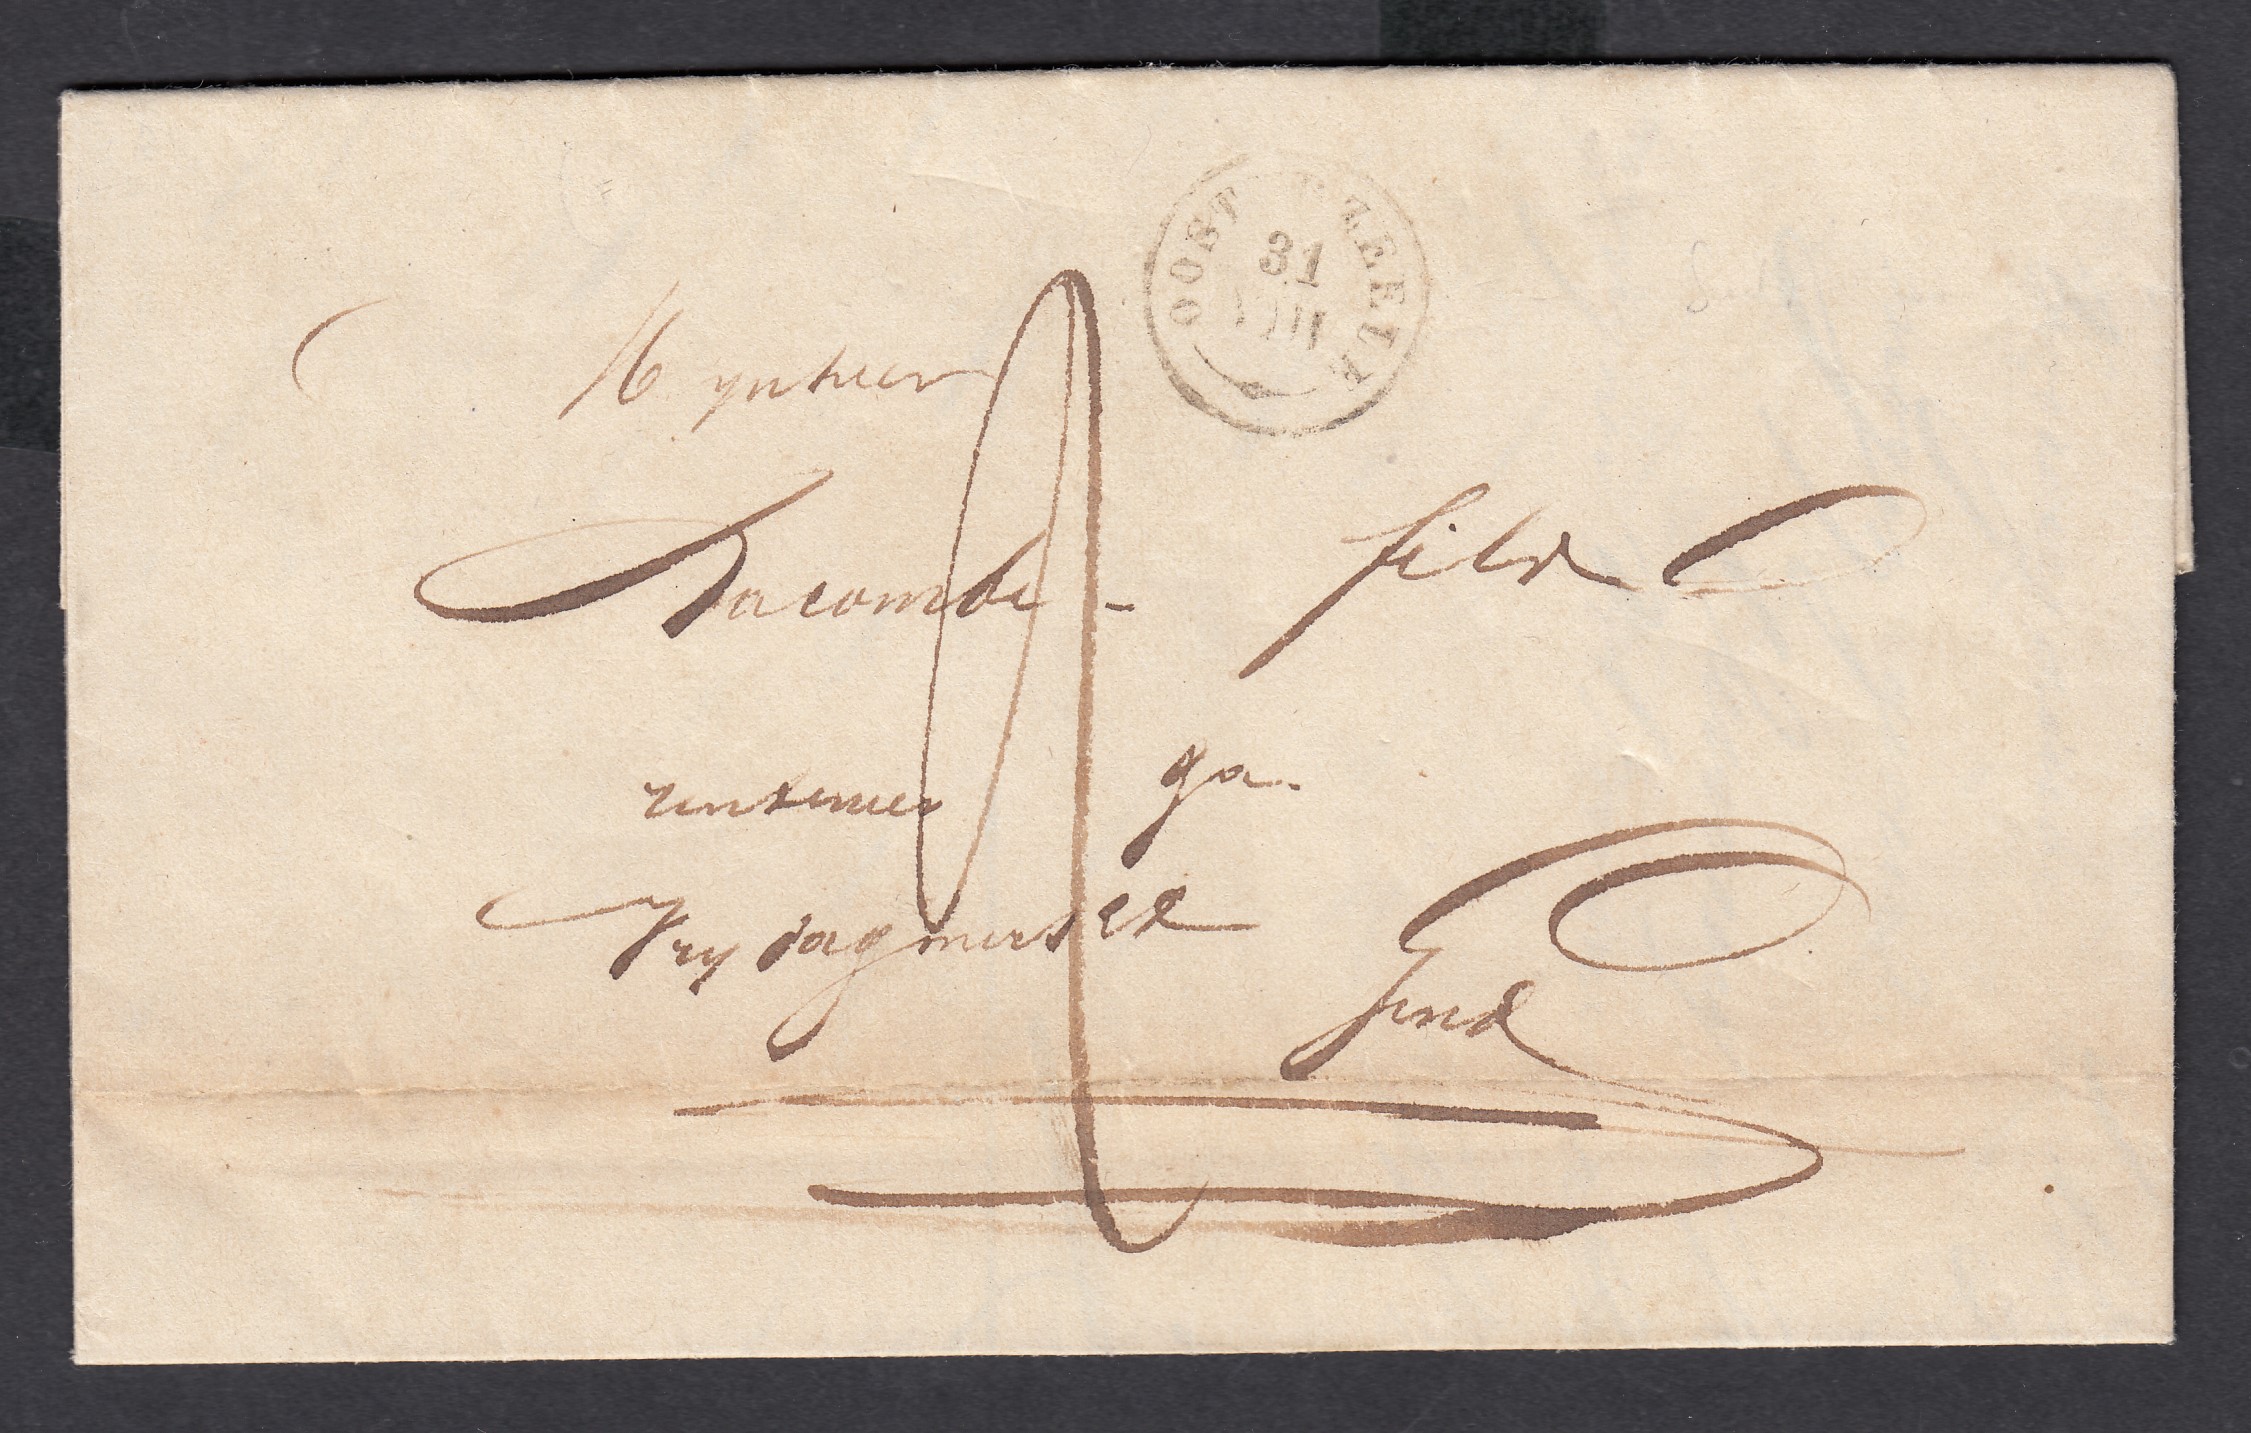 OOST   ZEELE
31
VIII
Mynheer
Dacombe - fils
rentenier ga.
Vrydagmerkt
Gend